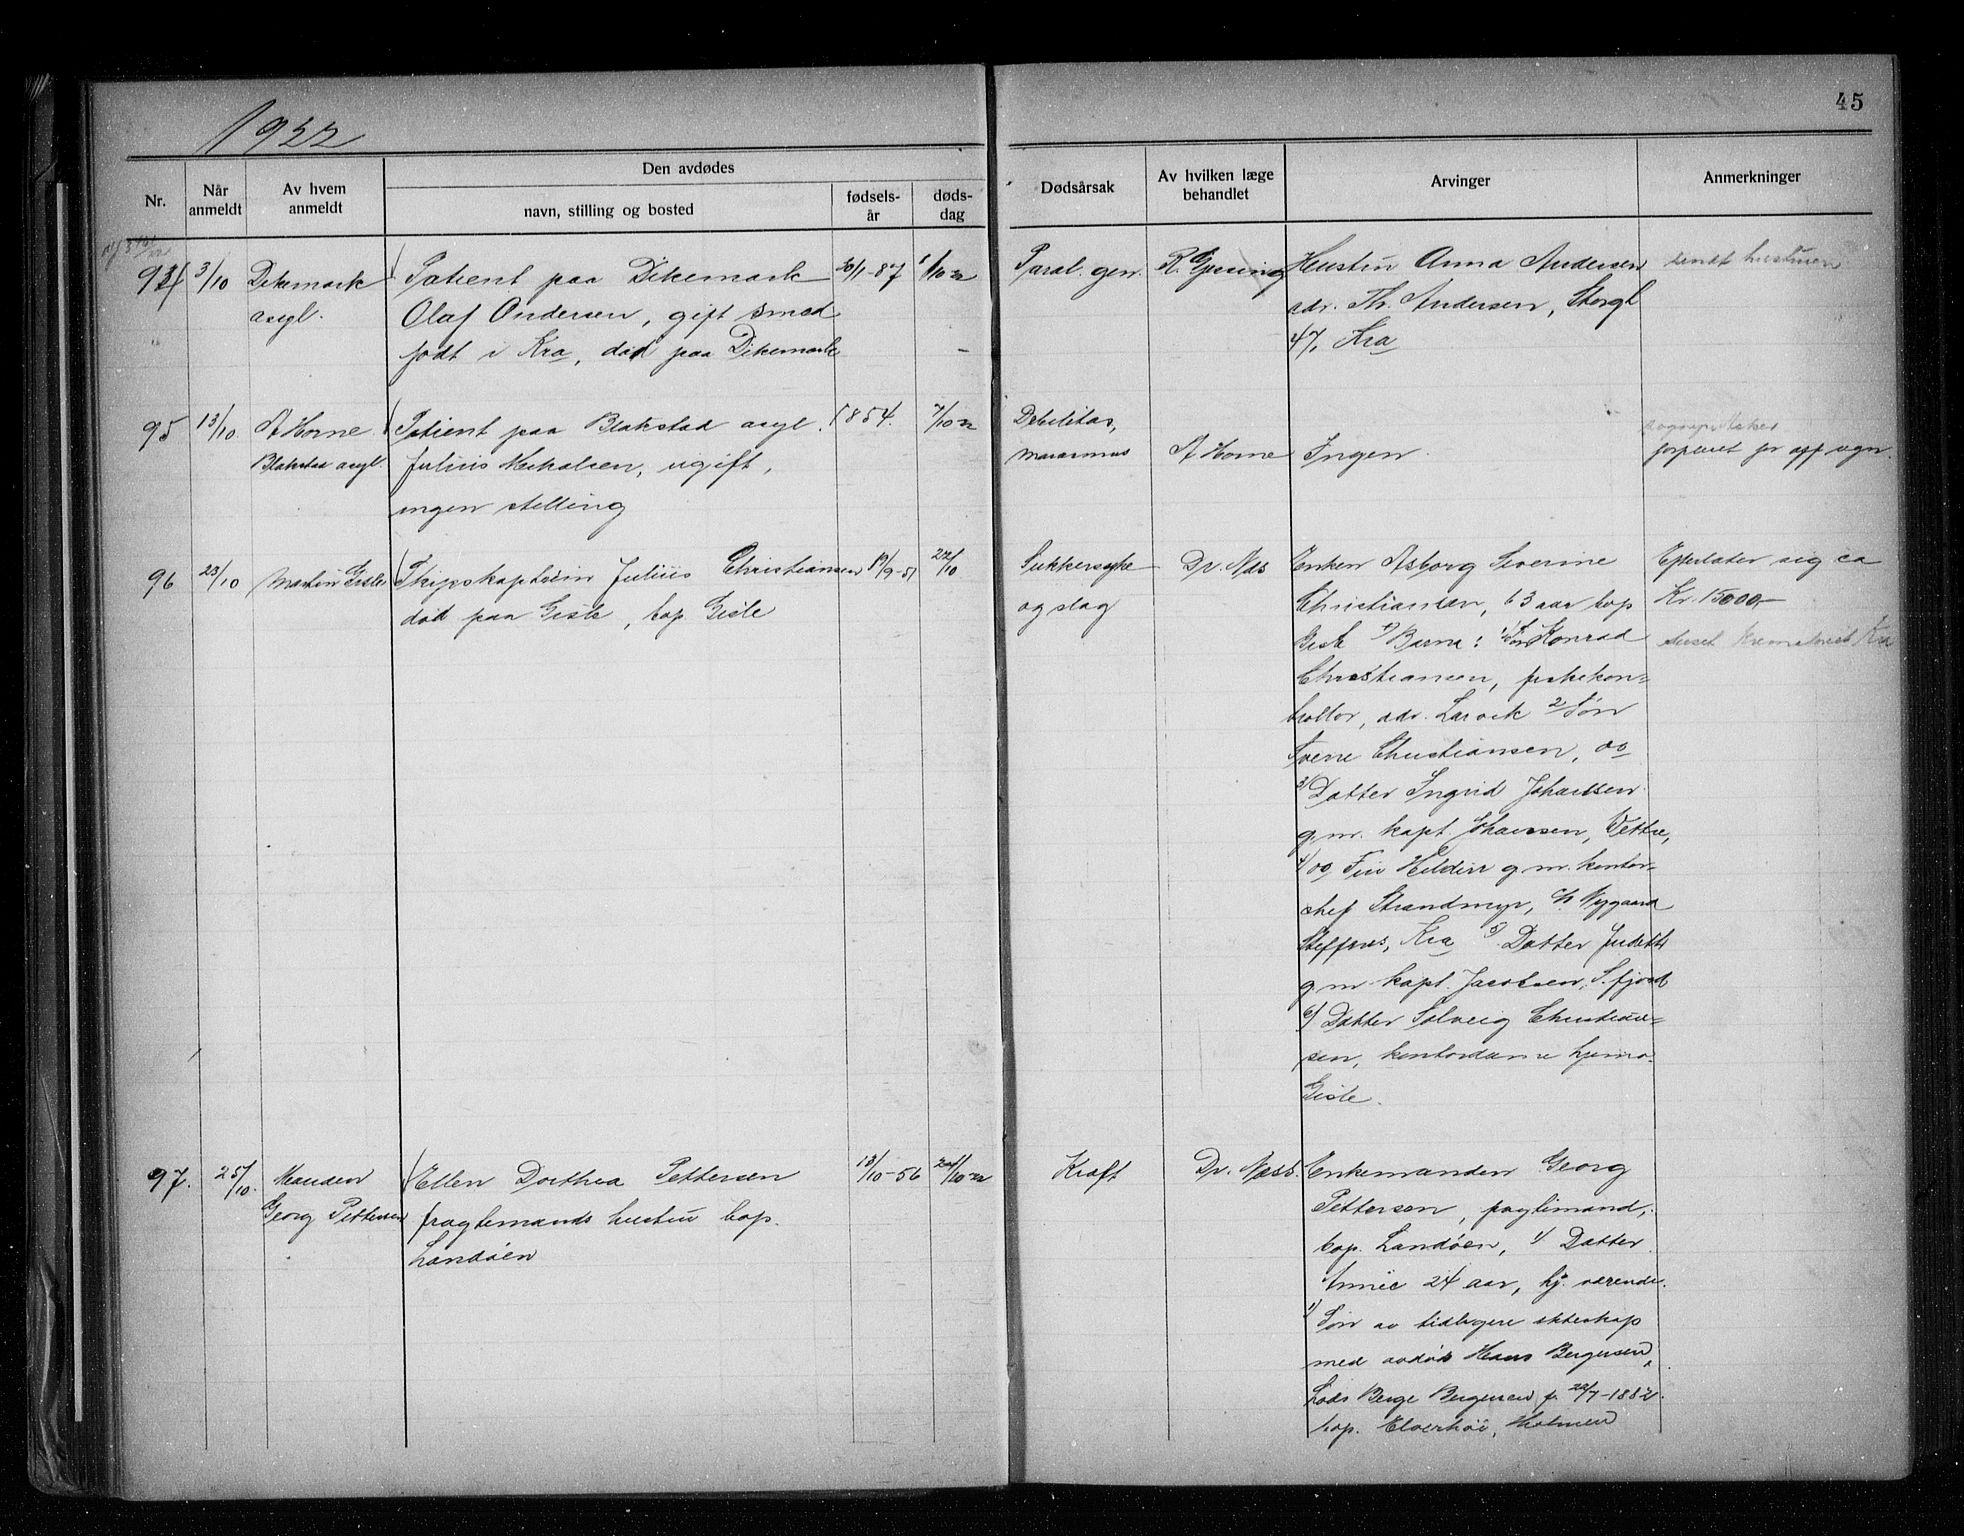 1922
45
Nr.
Når anmeldt
Av hvem anmeldt
Den avdødes
navn, stilling og bosted
fødsels-år
døds-dag
Dødsårsak
Av hvilken læge behandlet
Arvinger
Anmerkninger
94 3/10 Dikemark asyl.
Patient paa Dikemark
Olaf Andersen, gift smed
født i Kra, død paa Dikemark
20/1-87 1/10 22
Paral. gen. R. Gjessing
Hustru Anna Andersen
adr. Th. Andersen, Storgt
47, Kra
sendt hustruen
95 13/10. A Horne
Blakstad asyl.
Patient paa Blakstad asyl.
Julius Mikalsen, ugift,
ingen stilling
1854. 7/10 22
Debilitas,
marasmus
A Horne
Ingen.
96 23/10 Martin Gisle
Skipskaptein Julius Christiansen
død paa Gisle, bop Gisle
19/9-51 22/10
Sukkersyke
og slag
Dr. Næs
Enken Asborg Severine
Christiansen, 63 aar bop
Gisle Barna: 1/ Søn Konrad
Christiansen, fiskekon-
trollør, adr. Larvik 2/ Søn
Sverre Christiansen, do
3/ Datter Ingrid Johansen
g.m. kapt. Johansen, Vettre,
4/ do, Fru Hildur g.m. kontor-
chef Strandmyr,
Kra 5/ Datter Judith
g.m. kapt. Jacobsen, S.fjord
6/ Datter Solveig Christian-
sen, kontordame hjemme
Gisle.
Efterlater sig ca
Kr. 15000,-
97. 25/10. Manden
Georg Pettersen
Ellen Dorthea Pettersen
fragtemands hustru bop.
Landøen
13/10-56 24/10-22
Kræft
Dr. Næss.
Enkemanden Georg
Pettersen, fragtemand,
bop. Landøen, 1/ Datter
Annie 24 aar, hj. værende.
1/ Søn av tidligere ekteskap
med avdøde Hans Bergersen,
Lods Berge Bergersen f. 22/7-1882.
bop. Elverhøi, Holmen